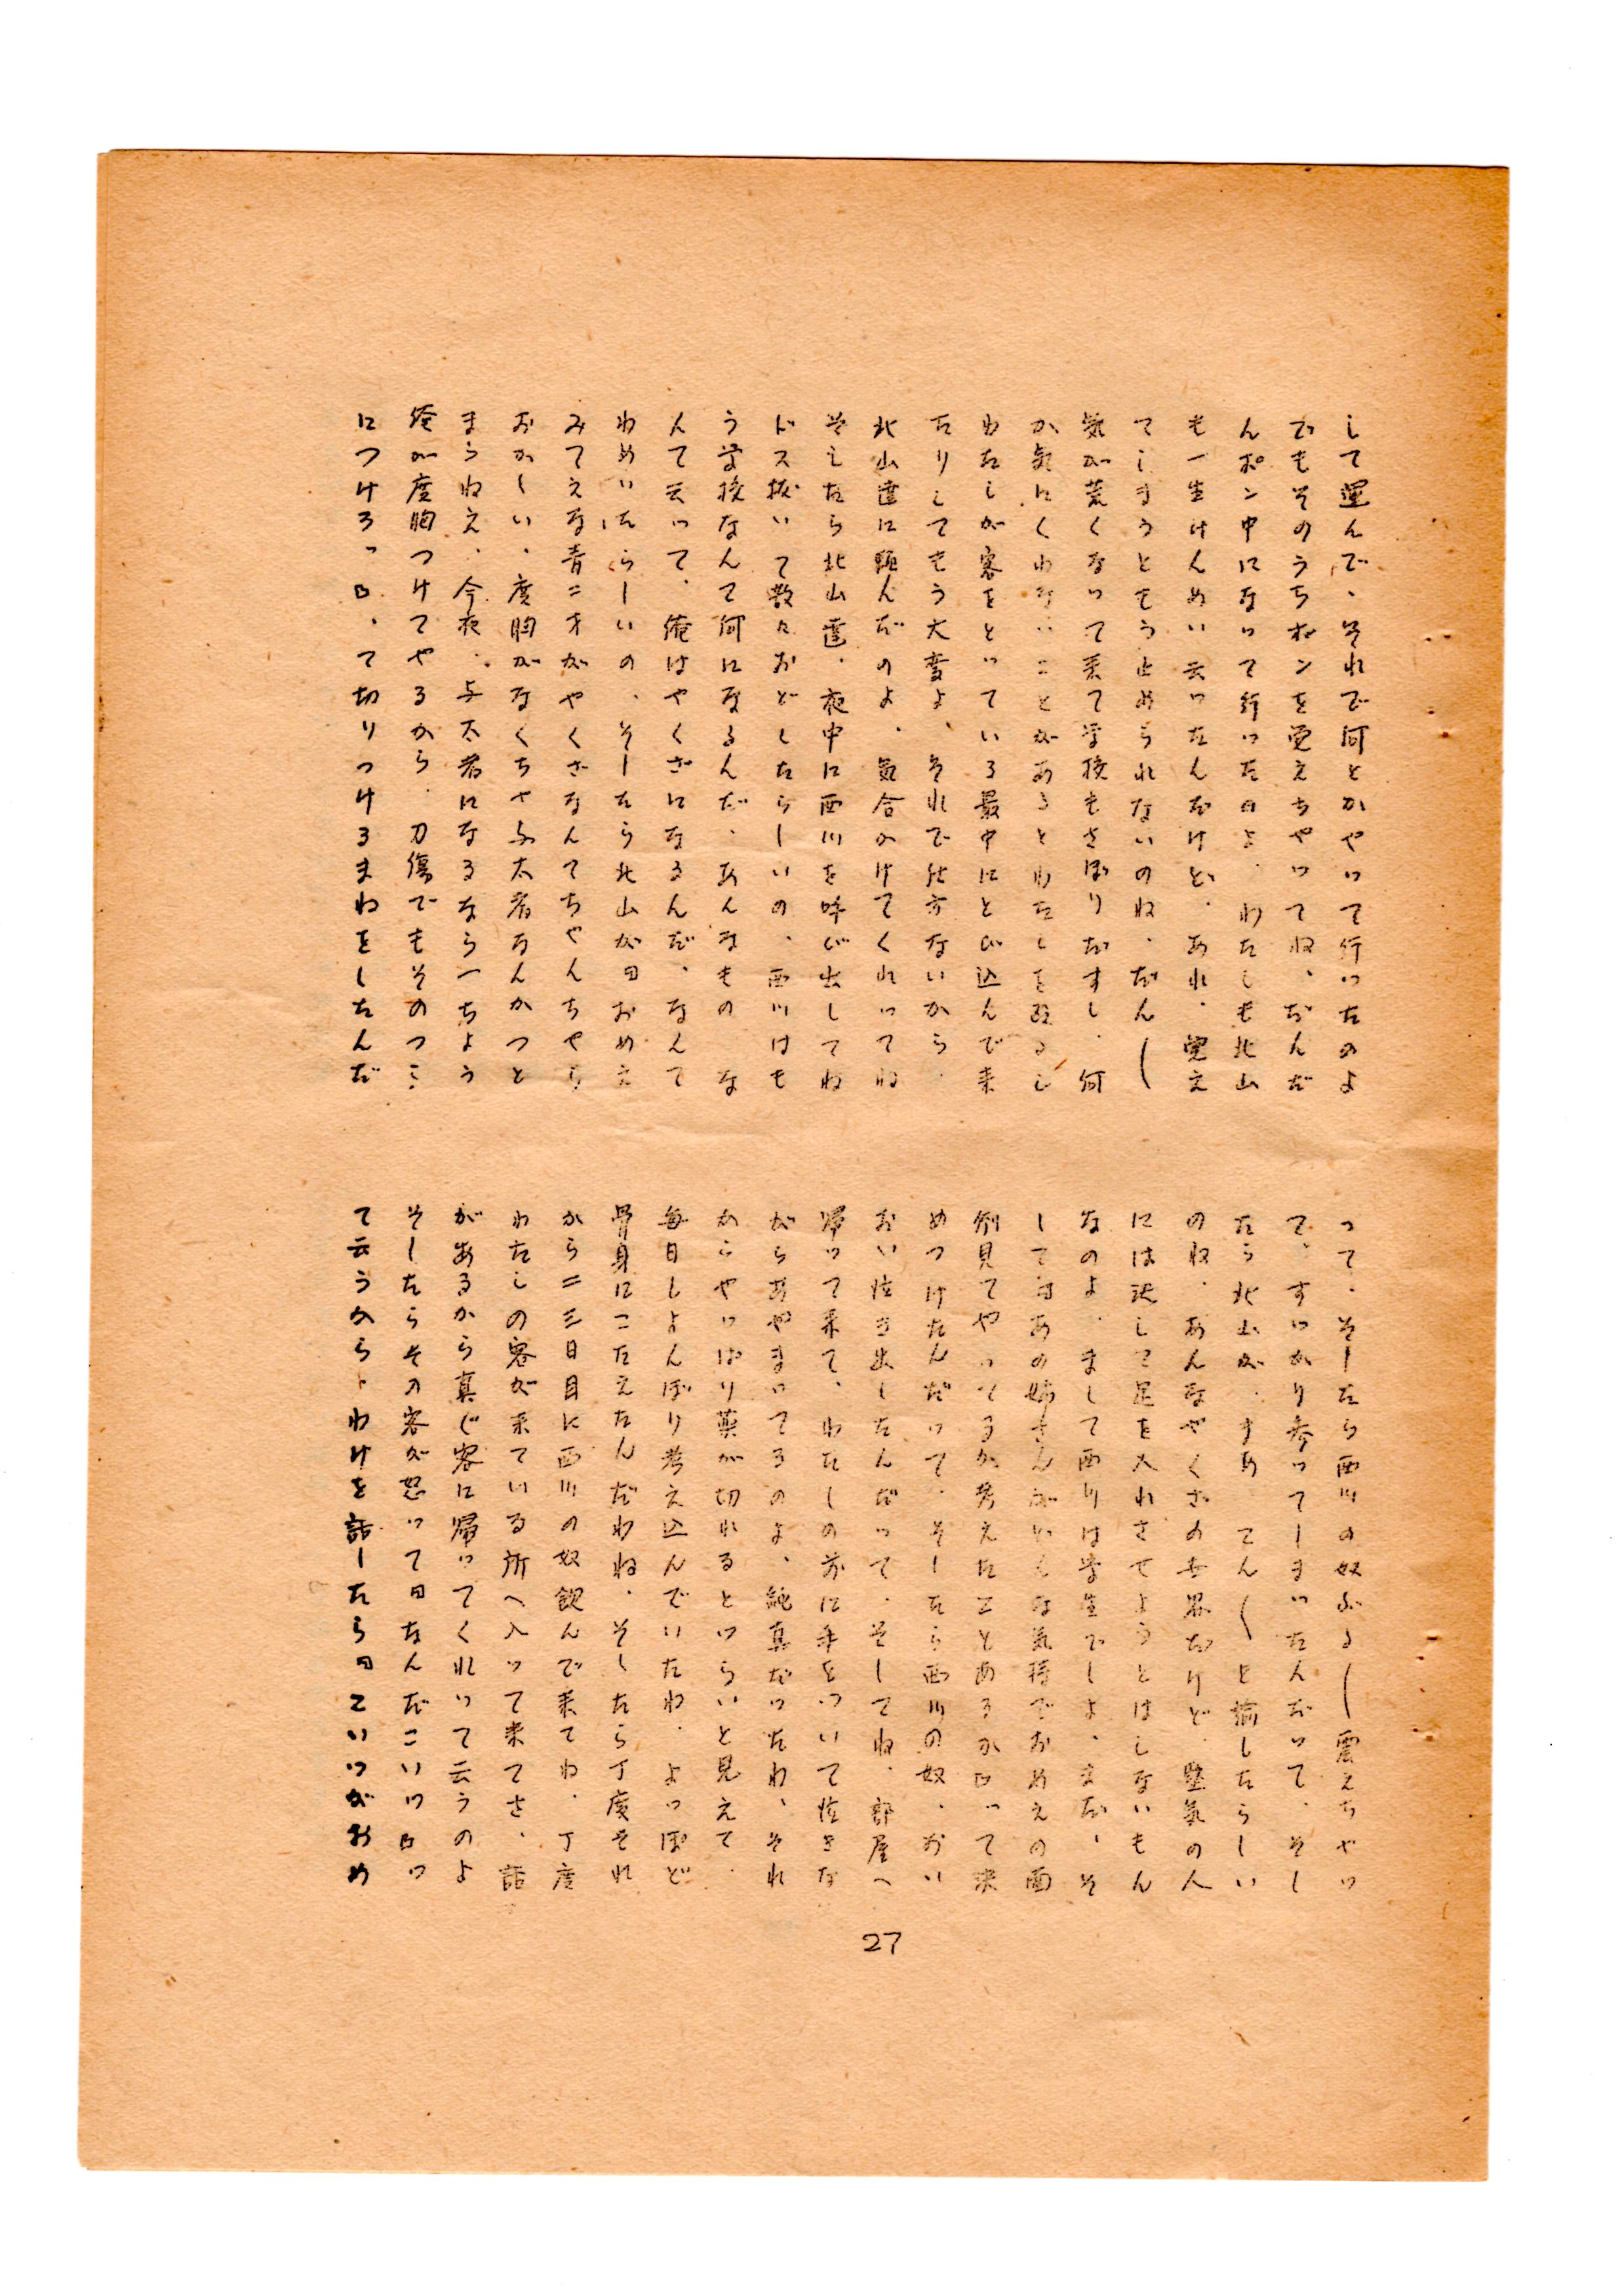 して運んで、それで何とかやって行ったのよ
でもそのうちポンを覚えちやってね、だんだ
んポン中になって行ったのよ、わたしも北山
も一生けんめい云ったんだけど、あれ、覚え
てしまうともう止められないのね、だん〱
気が荒くなって来て学校もさぼりだすし、何
か気にくわないことがあるとわたしを殴るし
わたしが客をとっている最中にとび込んで来
たりしてもう大変よ、それで仕方ないから、
北山達に頼んだのよ、気合かけてくれってね
そしたら北山達、夜中に西川を呼び出してね
ドス抜いて散々おどしたらしいの、西川はも
う学校なんて何になるんだ、あんなもの な
んて云って、俺はやくざになるんだ、なんて
わめいたらしいの、そしたら北山が『おめえ
みてえな青二才がやくざなんてちやんちやら
おかしい、度胸がなくちや与太者なんかつと
まらねえ、今夜、与太者になるなら一ちよう
俺が度胸つけてやるから、刀傷でもそのつら
につけろっ』、て切りつけるまねをしたんだ
って、そしたら西川の奴ぶる〱震えちやっ
て、すっかり参ってしまったんだって、そし
たら北山が、すあ てん〱と諭したらしい
のね、あんなやくざの世界だけど、堅気の人
には決して足を入れさせようとはしないもん
なのよ、まして西川は学生でしよ、まだ、そ
して『あの姉さんがどんな気持でおめえの面
倒見てやってるか考えたことあるか』って決
めつけたんだって、そしたら西川の奴、おい
おい泣き出したんだって、そしてね、部屋へ
帰って来て、わたしの前に手をついて泣きな
がらあやまってるのよ、純真だったわ、それ
からやっぱり薬が切れるとつらいと見えて、
毎日しよんぼり考え込んでいたわ、よっぽど
骨身にこたえたんだわね、そしたら丁度それ
から二三日目に西川の奴飲んで来てね、丁度
わたしの客が来ている所へ入って来てさ、話
があるから真ぐ客に帰ってくれって云うのよ
そしたらその客が怒って『なんだこいつ』っ
て云うから、わけを話したら『こいつがおめ
27